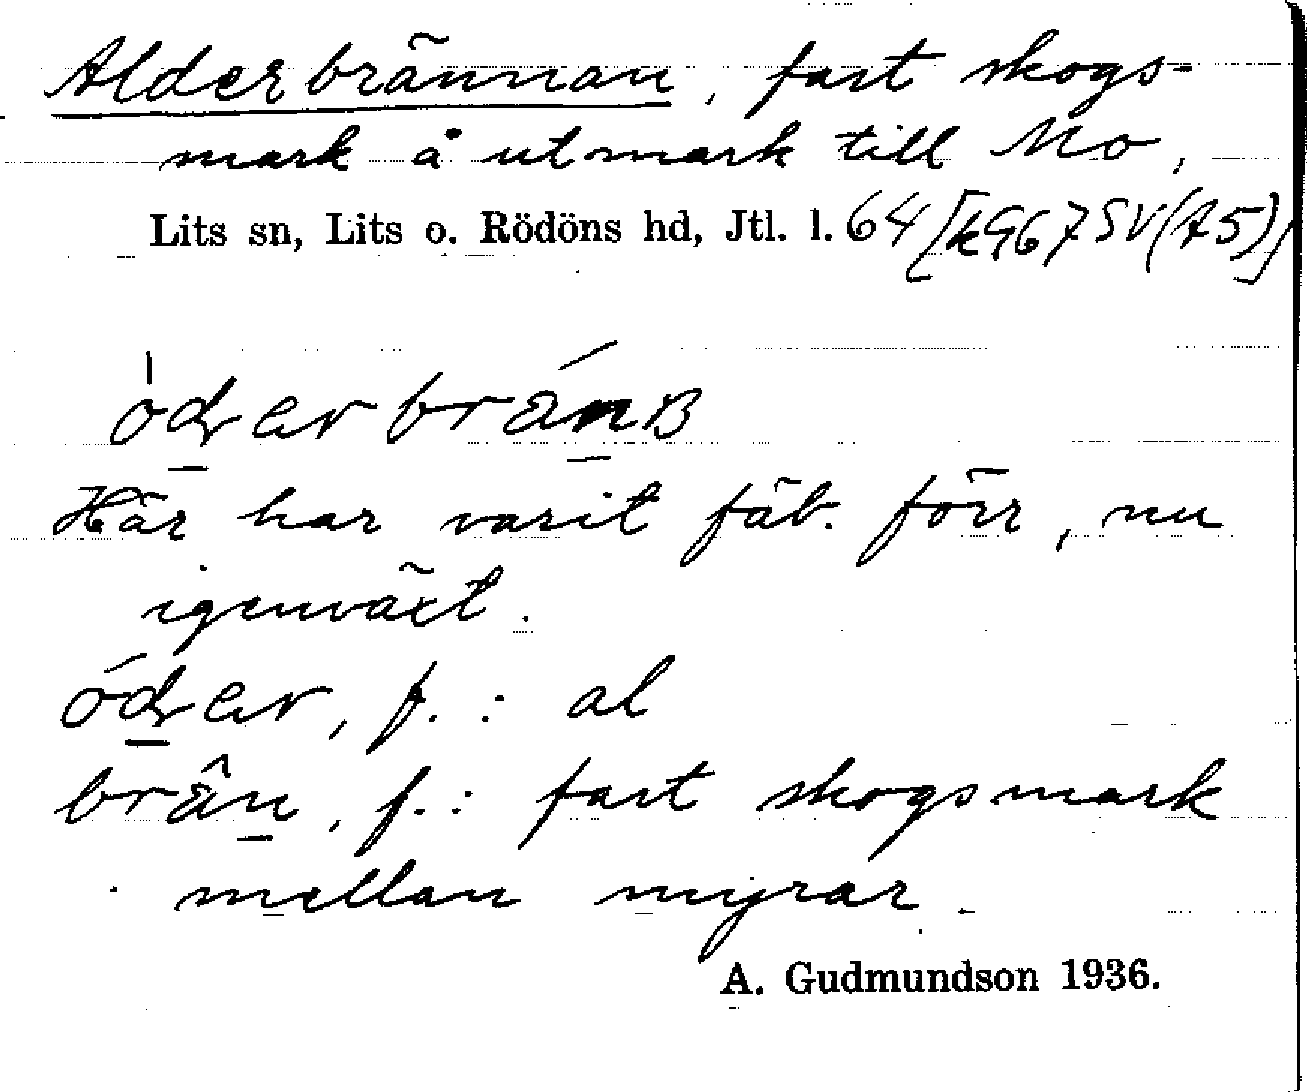 Alderbrännan, fast skogs-
mark å utmark till Mo,
Lits sn, Lits o. Rödöns hd, Jtl. l. 64 [k967SV(A5)]
Här har varit fäb. förr, nu
igenväxt.
f.: al
brän, f.: fast skogsmark
mellan myrar.
A. Gudmundson 1936.